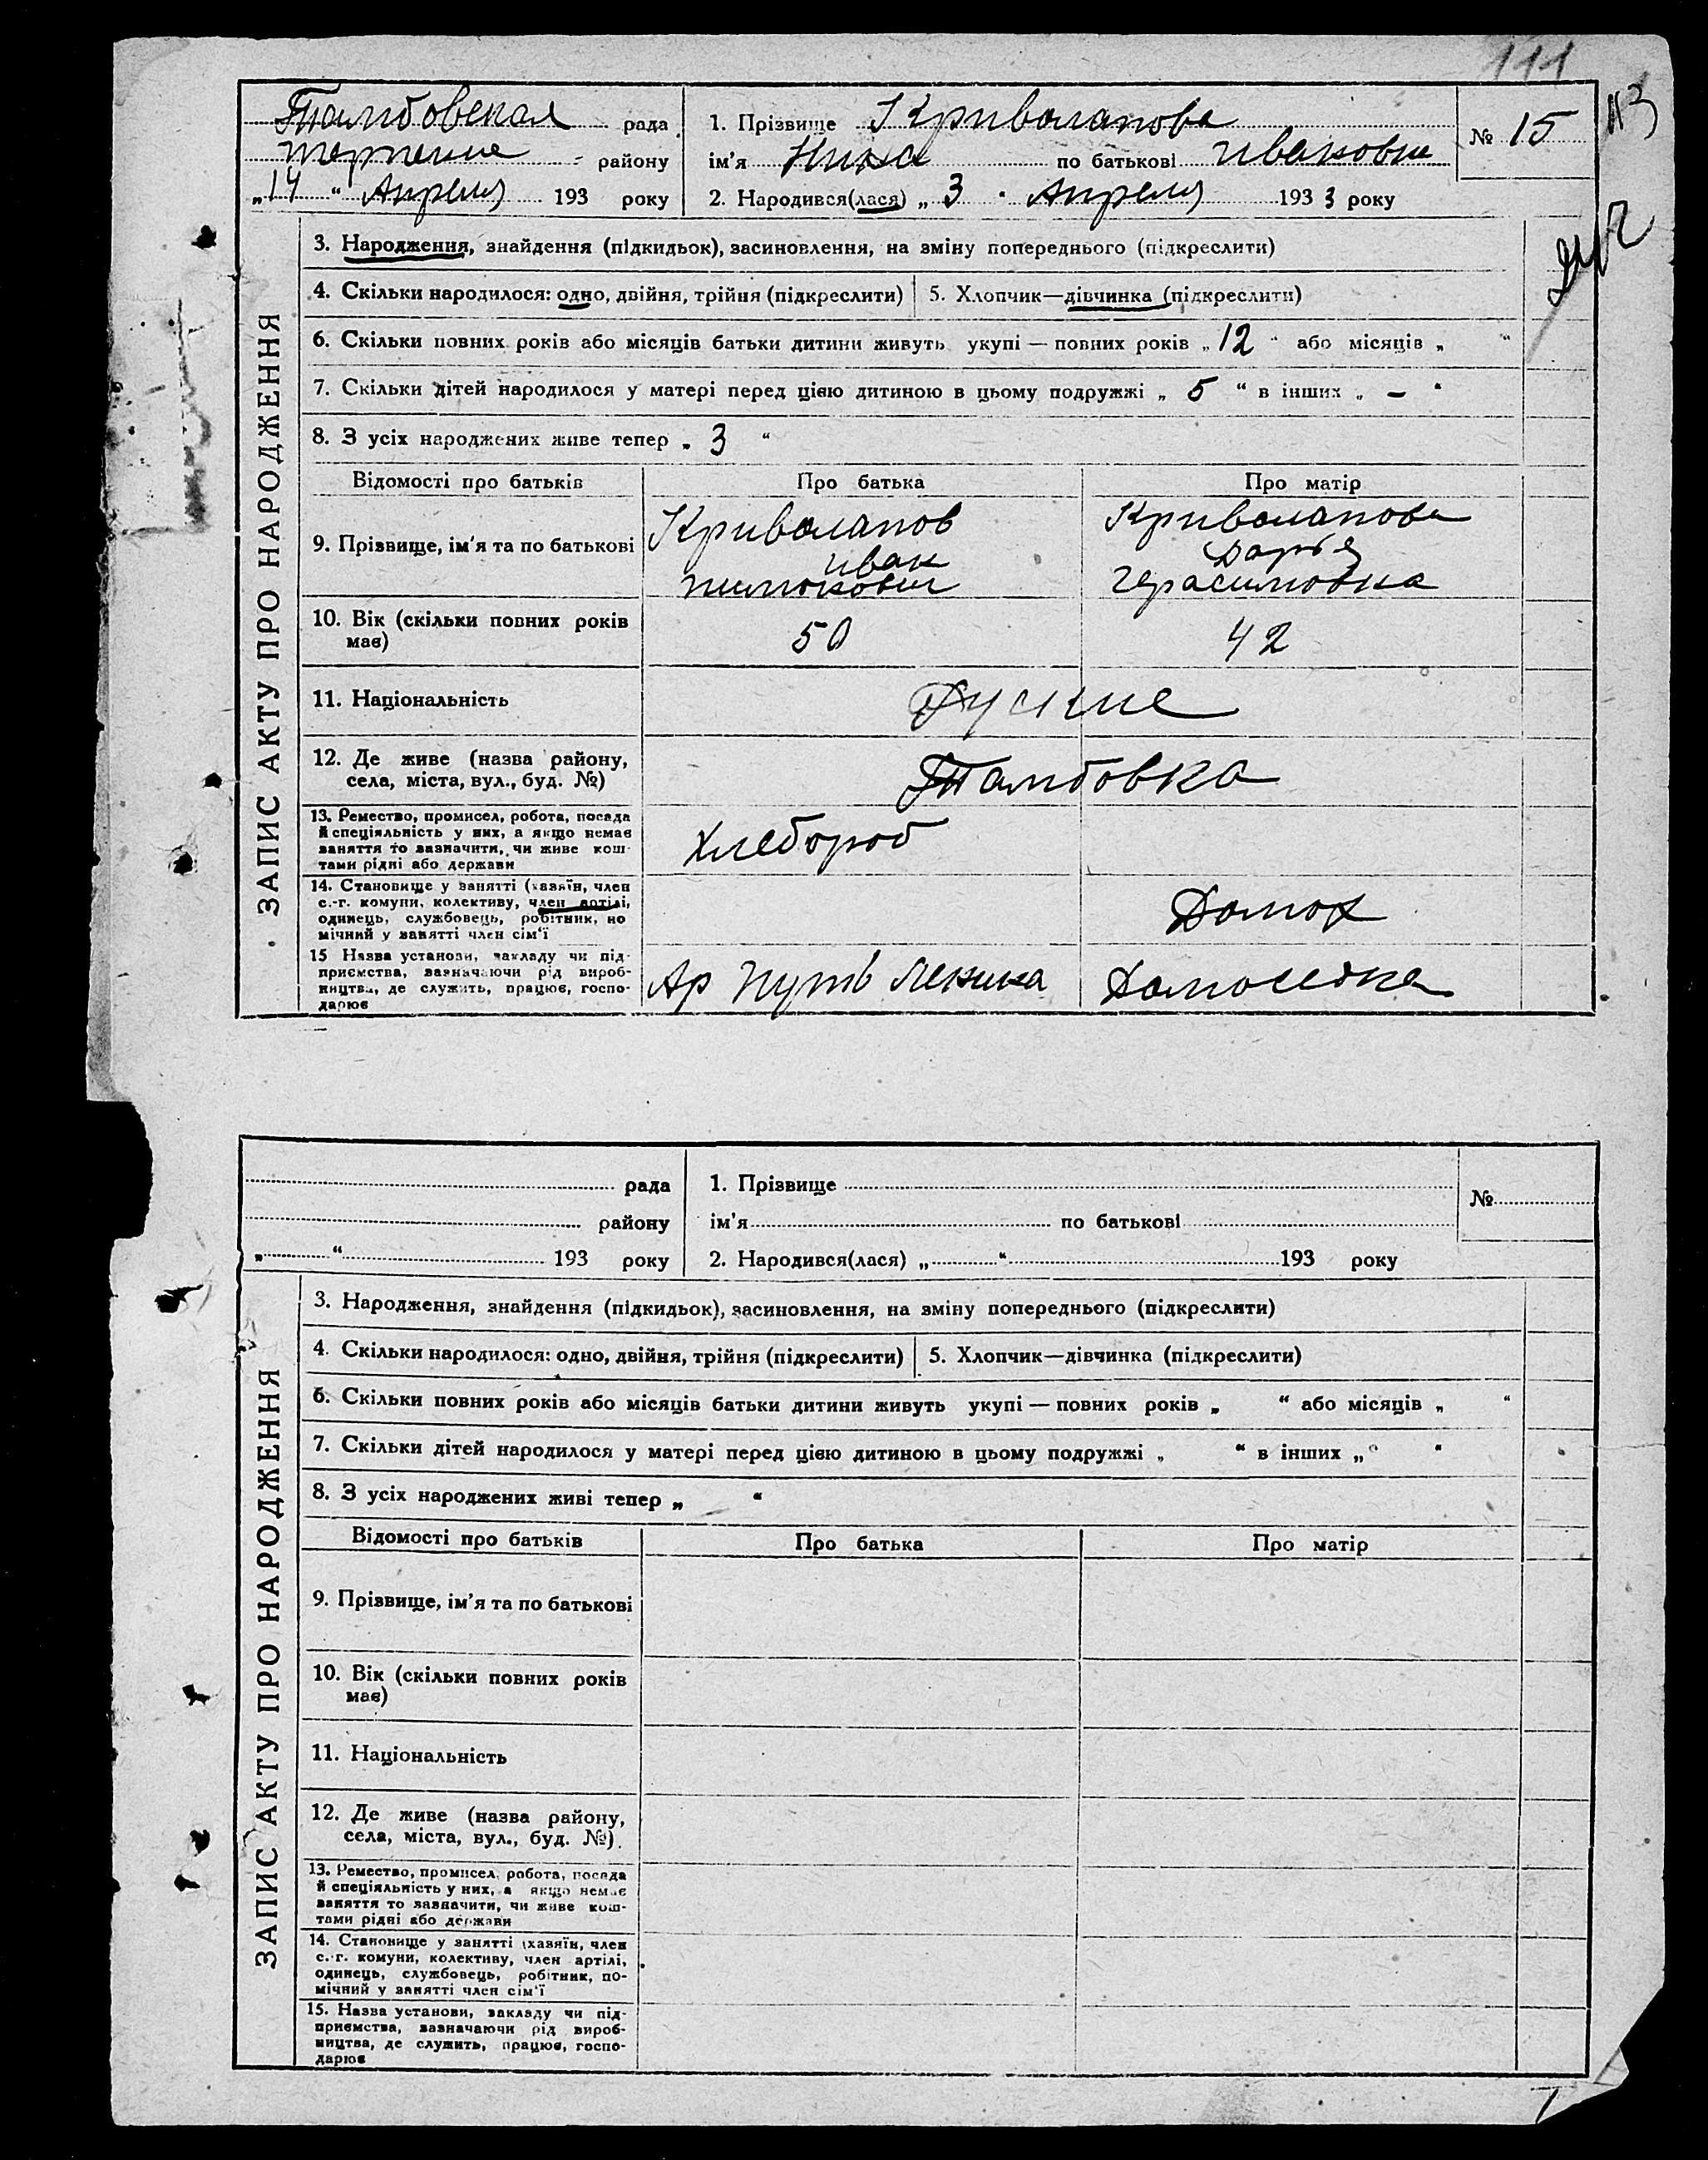 111
113
Тамбовская рада
терпение району
„14“ Апреля 193 року
1. Прізвище Криволапова
ім'я Нина по батькові ивановна
2. Народився(лася) „3“ Апреля 1933 року
№ 15
ЗАПИС АКТУ ПРО НАРОДЖЕННЯ
3. Народження, знайдення (підкидьок), засиновлення, на зміну попереднього (підкреслити)
4. Скільки народилося: одно, двійня, трійня (підкреслити) 5. Хлопчик—дівчинка (підкреслити)
6. Скільки повних років або місяців батьки дитини живуть укупі — повних років „12“ або місяців „ “
7. Скільки дітей народилося у матері перед цією дитиною в цьому подружжі „ 5 “ в інших „ – “
8. З усіх народжених живе тепер „ 3 “
Відомості про батьків Про батька Про матір
9. Прізвище, ім'я та по батькові
Криволапов
иван
тимохович
Криволапова
Дарья
Герасимовна
10. Вік (скільки повних років
має)
50 42
11. Національність Руские
12. Де живе (назва району,
села, міста, вул., буд. №)
Тамбовка
13. Ремество, промисел, робота, посада
й спеціяльність у них, а якщо немає
заняття то зазначити, чи живе кош-
тами рідні або держави
Хлебороб
14. Становище у занятті (хазяїн, член
с.-г. комуни, колективу, член артілі,
одинець, службовець, робітник, по
мічний у занятті член сім'ї
Домох
15 Назва установи, закладу чи під-
приємства, зазначаючи рід вироб-
ництва, де служить, працює, госпо-
дарює
Ар Путь Ленина Домоседка
рада
району
„ “ 193 року
1. Прізвище
ім'я по батькові
2. Народився(лася) „ “ 193 року
№
ЗАПИС АКТУ ПРО НАРОДЖЕННЯ
3. Народження, знайдення (підкидьок), засиновлення, на зміну попереднього (підкреслити)
4. Скільки народилося: одно, двійня, трійня (підкреслити) 5. Хлопчик—дівчинка (підкреслити)
6. Скільки повних років або місяців батьки дитини живуть укупі — повних років „ “ або місяців „ “
7. Скільки дітей народилося у матері перед цією дитиною в цьому подружжі „ “ в інших „ “
8. З усіх народжених живі тепер „ “
Відомості про батьків Про батька Про матір
9. Прізвище, ім'я та по батькові
10. Вік (скільки повних років
має)
11. Національність
12. Де живе (назва району,
села, міста, вул., буд. №)
13. Ремество, промисел, робота, посада
й спеціяльність у них, а якщо немає
заняття то зазначити, чи живе кош-
тами рідні або держави
14. Становище у занятті (хазяїн, член
с.-г. комуни, колективу, член артілі,
одинець, службовець, робітник, по-
мічний у занятті член сім'ї
15. Назва установи, закладу чи під-
приємства, зазначаючи рід вироб-
ництва, де служить, працює, госпо-
дарює